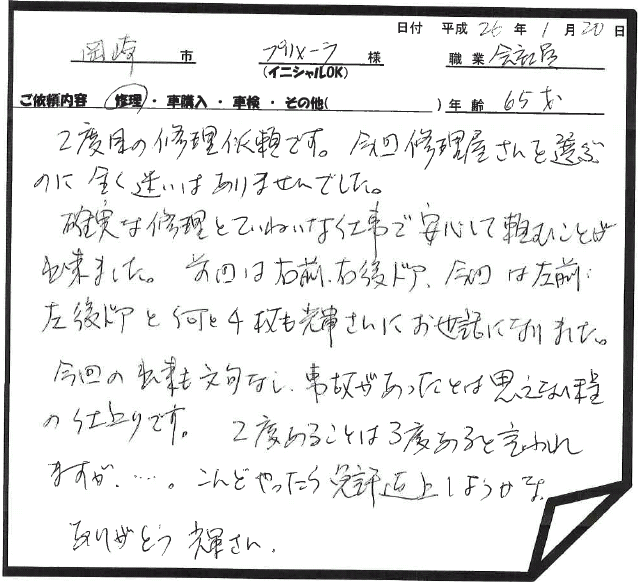 日付 平成 26 年 1 月 20 日
岡崎 市 プリメーラ 様 職業 会社員
(イニシャルOK)
ご依頼内容 修理・車購入・車検・その他( ) 年齢 65才
2度目の修理依頼です。今回修理屋さんを選ぶ
のに全く迷いはありませんでした。
確実な修理とていねいな仕事で安心して頼むことが
出来ました。前回は右前、右後ドア、今回は左前、
左後ドアと何と4枚も輝さんにお世話になりました。
今回の出来も文句なし、事故があったとは思えない程
の仕上りです。2度あることは3度あると言われ
ますが、…。こんどやったら免許返上しようかな。
ありがとう輝さん.